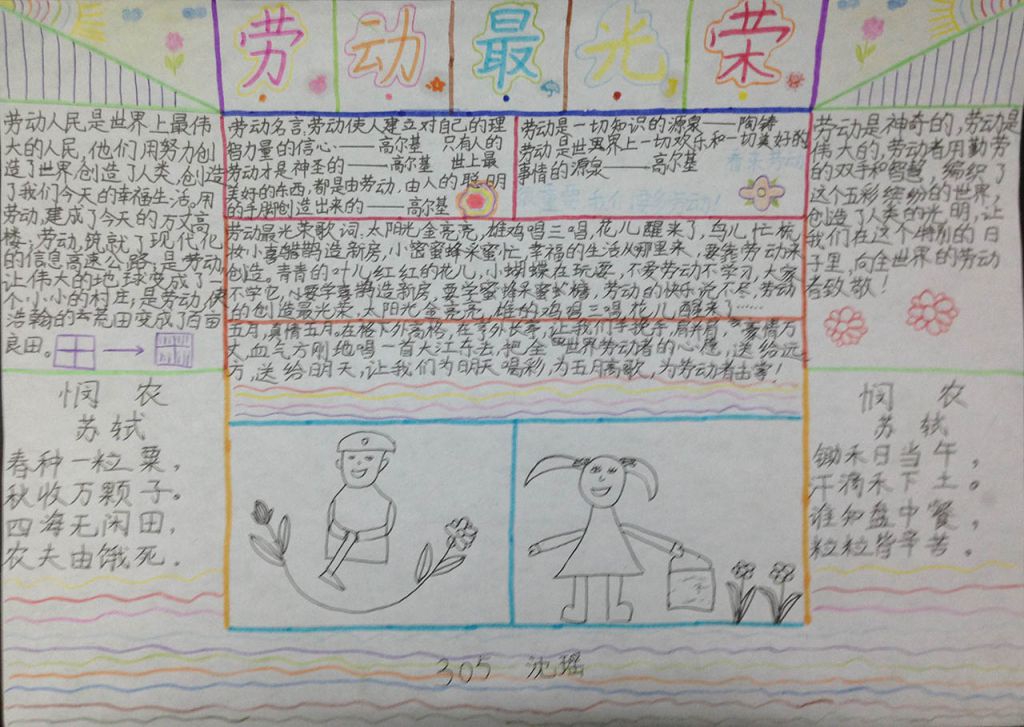 劳动最光荣
劳动人民是世界上最伟
大的人民,他们用努力创
造了世界,创造了人类,创造
了我们今天的幸福生活。用
劳动,建成了今天的万丈高
楼;劳动,筑就了现代化
的信息高速公路,是劳动,
让伟大的地球变成了一
个小小的村庄;是劳动,使
浩翰的荒田变成了百亩
良田。
悯 农
苏轼
春种一粒粟,
秋收万颗子。
四海无闲田,
农夫由饿死。
劳动名言,劳动使人建立对自己的理
智力量的信心——高尔基 只有人的
劳动才是神圣的——高尔基 世上最
美好的东西,都是由劳动,由人的聪明
的手脚创造出来的——高尔基
劳动是一切知识的源泉——陶铸
劳动是世界上一切欢乐和一切美好的
事情的源泉——高尔基
劳动最光荣歌词,太阳光金亮亮,雄鸡唱三唱,花儿醒来了,鸟儿忙梳
妆小喜鹊造新房,小蜜蜂采蜜忙,幸福的生活从哪里来,要靠劳动来
创造,青青的叶儿红红的花儿,小蝴蝶在玩耍,不爱劳动不学习,大家
不学它,要学喜鹊造新房,要学蜜蜂采蜜糖,劳动的快乐说不尽,劳动
的创造最光荣,太阳光金亮亮,雄的鸡鸡三唱花儿醒来了……
五月,真情五月,在格外
让我们手挽手,肩并肩,豪情万
丈,血气方刚地唱一首大江东去,把全世界劳动者的心愿,送给远
方,送给明天,让我们为明天喝彩,为五月高歌,为劳动者
劳动是神奇的,劳动是
伟大的,劳动者用勤劳
的双手和智慧,编织了
这个五彩缤纷的世界,
创造了人类的光明,让
我们在这个特别的日
子里,向住世界的劳动
者致敬!
悯 农
苏轼
锄禾日当午,
汗滴禾下土。
谁知盘中餐,
粒粒皆辛苦。
305 沈瑶